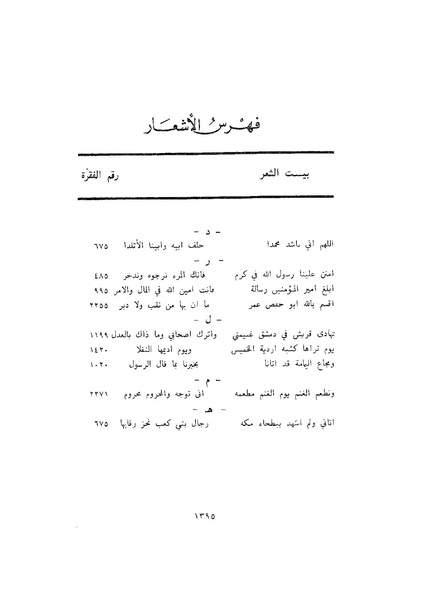 فهرس الأشعار
بيت الشعر رقم الفقرة
- د -
اللهم اني ناشد محمدا حلف ابيه وابينا الأتلدا ٦٧٥
- ر -
امنن علينا رسول الله في كرم فانك المرء نرجوه وندخر ٤٨٥
ابلغ امير المؤمنين رسالة فانت امين الله في المال والامر ٩٩٥
اقسم بالله ابو حفص عمر ما ان بها من نقب ولا دبر ٢٢٥٥
- ل -
تهادى قريش في دمشق غنيمتي واترك اصحابي وما ذاك بالعدل ١١٩٩
يوم تراها كشبه اردية الخميس ويوم اديمها النغلا ١٤٢٠
ومجاع اليامة قد اتانا يخبرنا بما قال الرسول ١٠٢٠
- م -
ومطعم الغنم يوم الغنم مطعمه انى توجه والمحروم محروم ٢٢٧١
- هـ -
اتاني ولم اشهد ببطحاء مكه رجال بني كعب تحز رقابها ٦٧٥
١٣٩٥